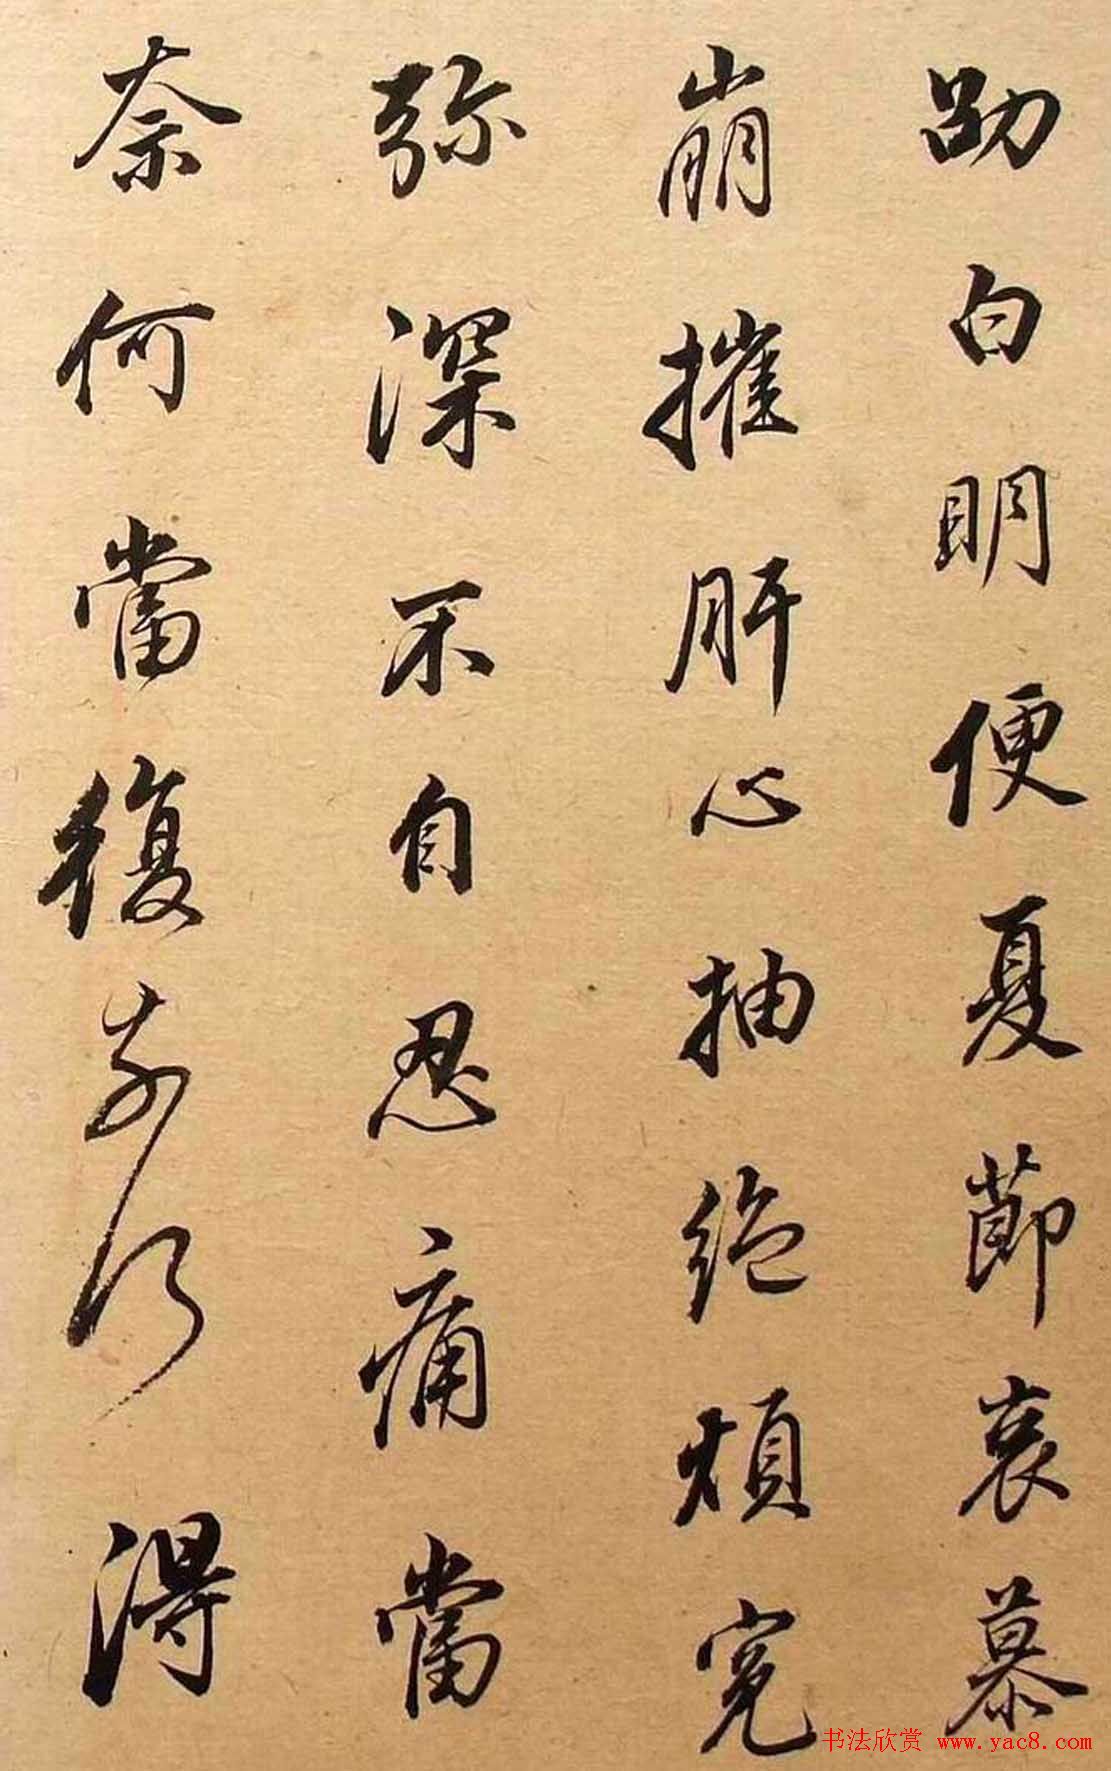 劭白明便夏節哀慕
崩摧肝心抽絕煩冤
弥深不自忍痛當
奈何當復奈何得
书法欣赏 www.yac8.com